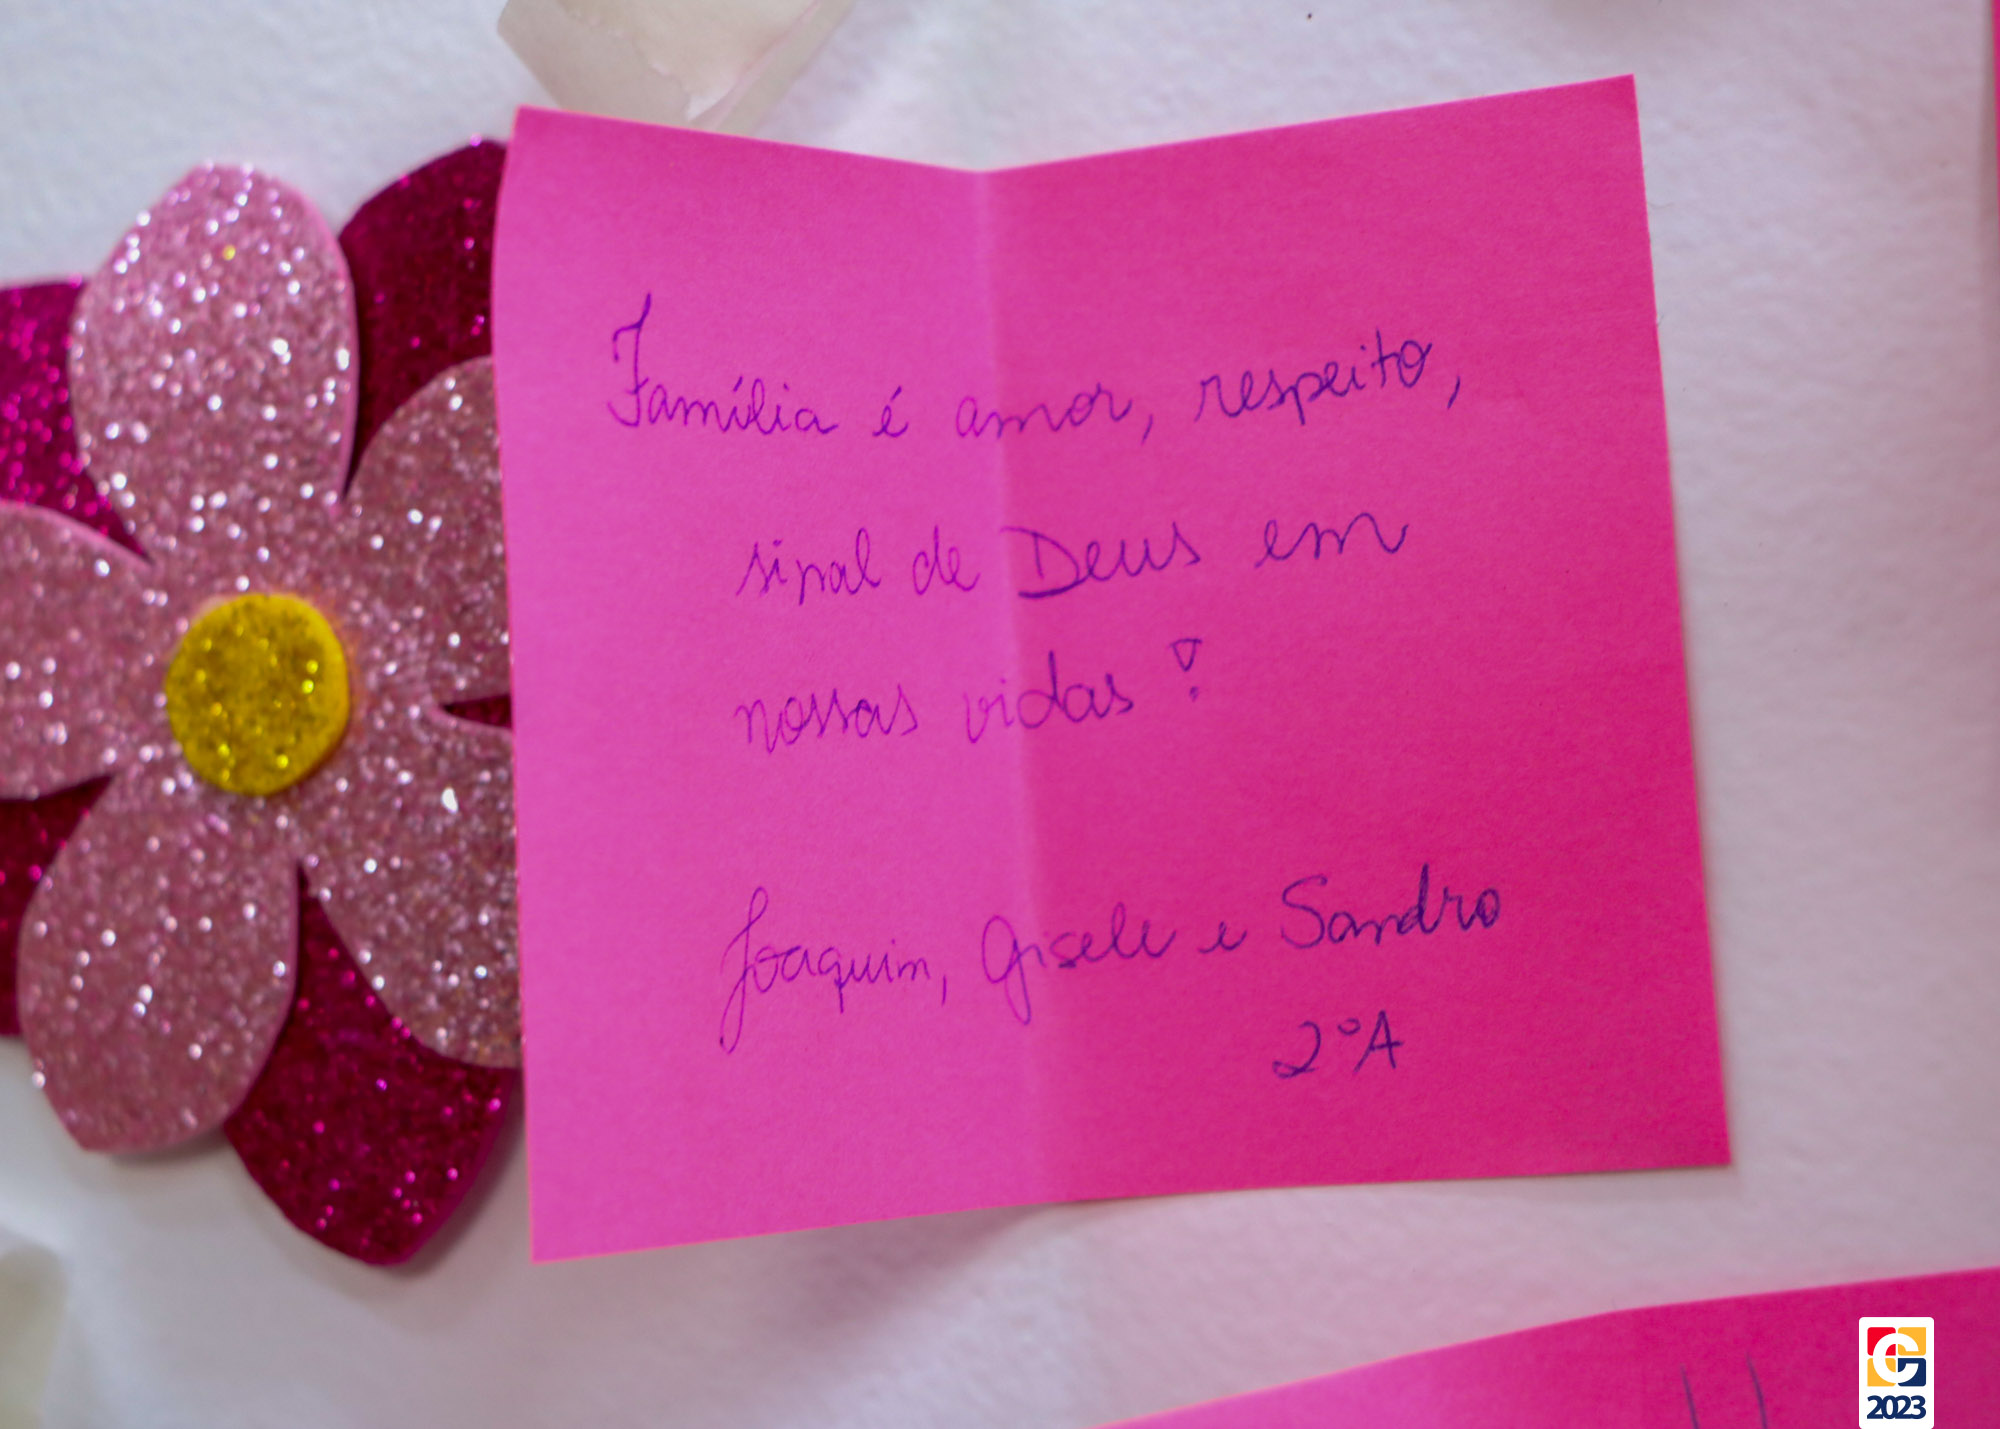 Família é amor, respeito,
sinal de Deus em
nossas vidas!
Joaquim, Gisele e Sandro
2ºA
G
2023